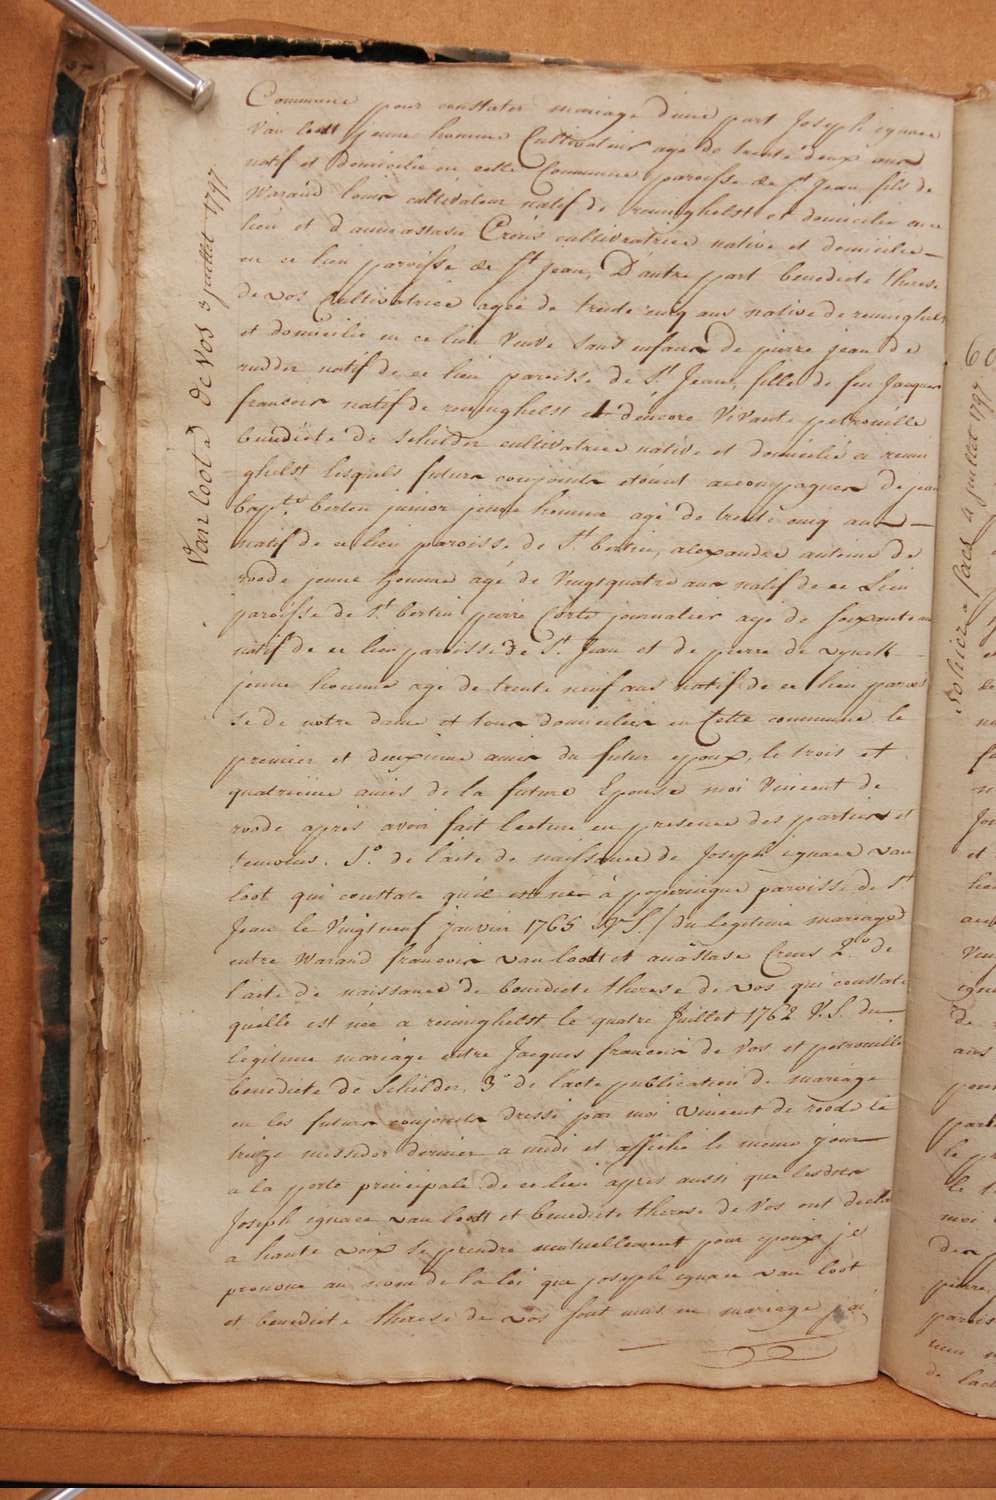 Commune pour constater mariage d'une part Joseph ignace
Van loott jeune homme Cultivateur agé de trente deux ans
natif et domicilié en cette Commune paroisse de St Jean fils de
Warand louis cultivateur natif de reninghelst et domicilié en ce
lieu et d'anneastasie Creus cultivatrice native et domicilié
en ce lieu paroisse de St Jean, D'autre part benedicte therese
de vos Cultivatrice agée de trente cinq ans native de reninghelst
et domicilié en ce lieu Veuve sans enfans de pierre jean de
rudder natif de ce lieu paroisse de St Jean, fille de feu Jacques
francois natif de reninghelst et d'encore Vivante petronille
benedicte de schilder cultivatrice native et domicilié a renin
ghelst lesquels futurs conjoints etoient accompagnés de jean
bapte berten junior jeune homme agé de trente cinq ans
natif de ce lieu paroisse de St bertin, alexandre antoine de
roode jeune homme agé de Vingtquatre ans natif de ce Lieu
paroisse de St bertin pierre Corte journalier agé de soixante ans
natif de ce lieu paroisse de St Jean et de pierre de
jeune homme age de trente neuf ans natif de ce lieu parois
se de notre dame et tous domiciliés en Cette commune le
premier et deuxieme amis du futur epoux, le trois et
quatrieme amies de la future Epouse moi Vincent de
roode après avoir fait lecture en presence des parties et
temoins. 1o. de l'acte de naissance de Joseph ignace van
loot qui constate qu'il est née à poperingue paroisse de St
Jean le Vingtneuf janvier 1765 V S/ du legitime mariage
entre Warand francois van loott et anästase Creus 2o. de
l'acte de naissance de benedicte therese de vos qui constate
quelle est née a reninghelst le quatre Juillet 1762 V.S. du
legitime mariage entre Jacques francois de Vos et petronille
benedicte de Schilder, 3o de l'acte publication de mariage
en les futurs conjoints dressé par moi vincent de roode le
treize messidor dernier a midi et affiché le meme jour
a la porte principale de ce lieu après aussi que lesdites
Joseph ignace van loott et benedicte therese de Vos ont declaré
a haute voix se prendre mutuellement pour epoux je
prononce au nom de la loi que joseph ignace van loot
et benedicte therese de vos sont unis en mariage j'ai
Van loot & de Vos 3 juillet 1797
Sohier & Saes 4 juillet 1797